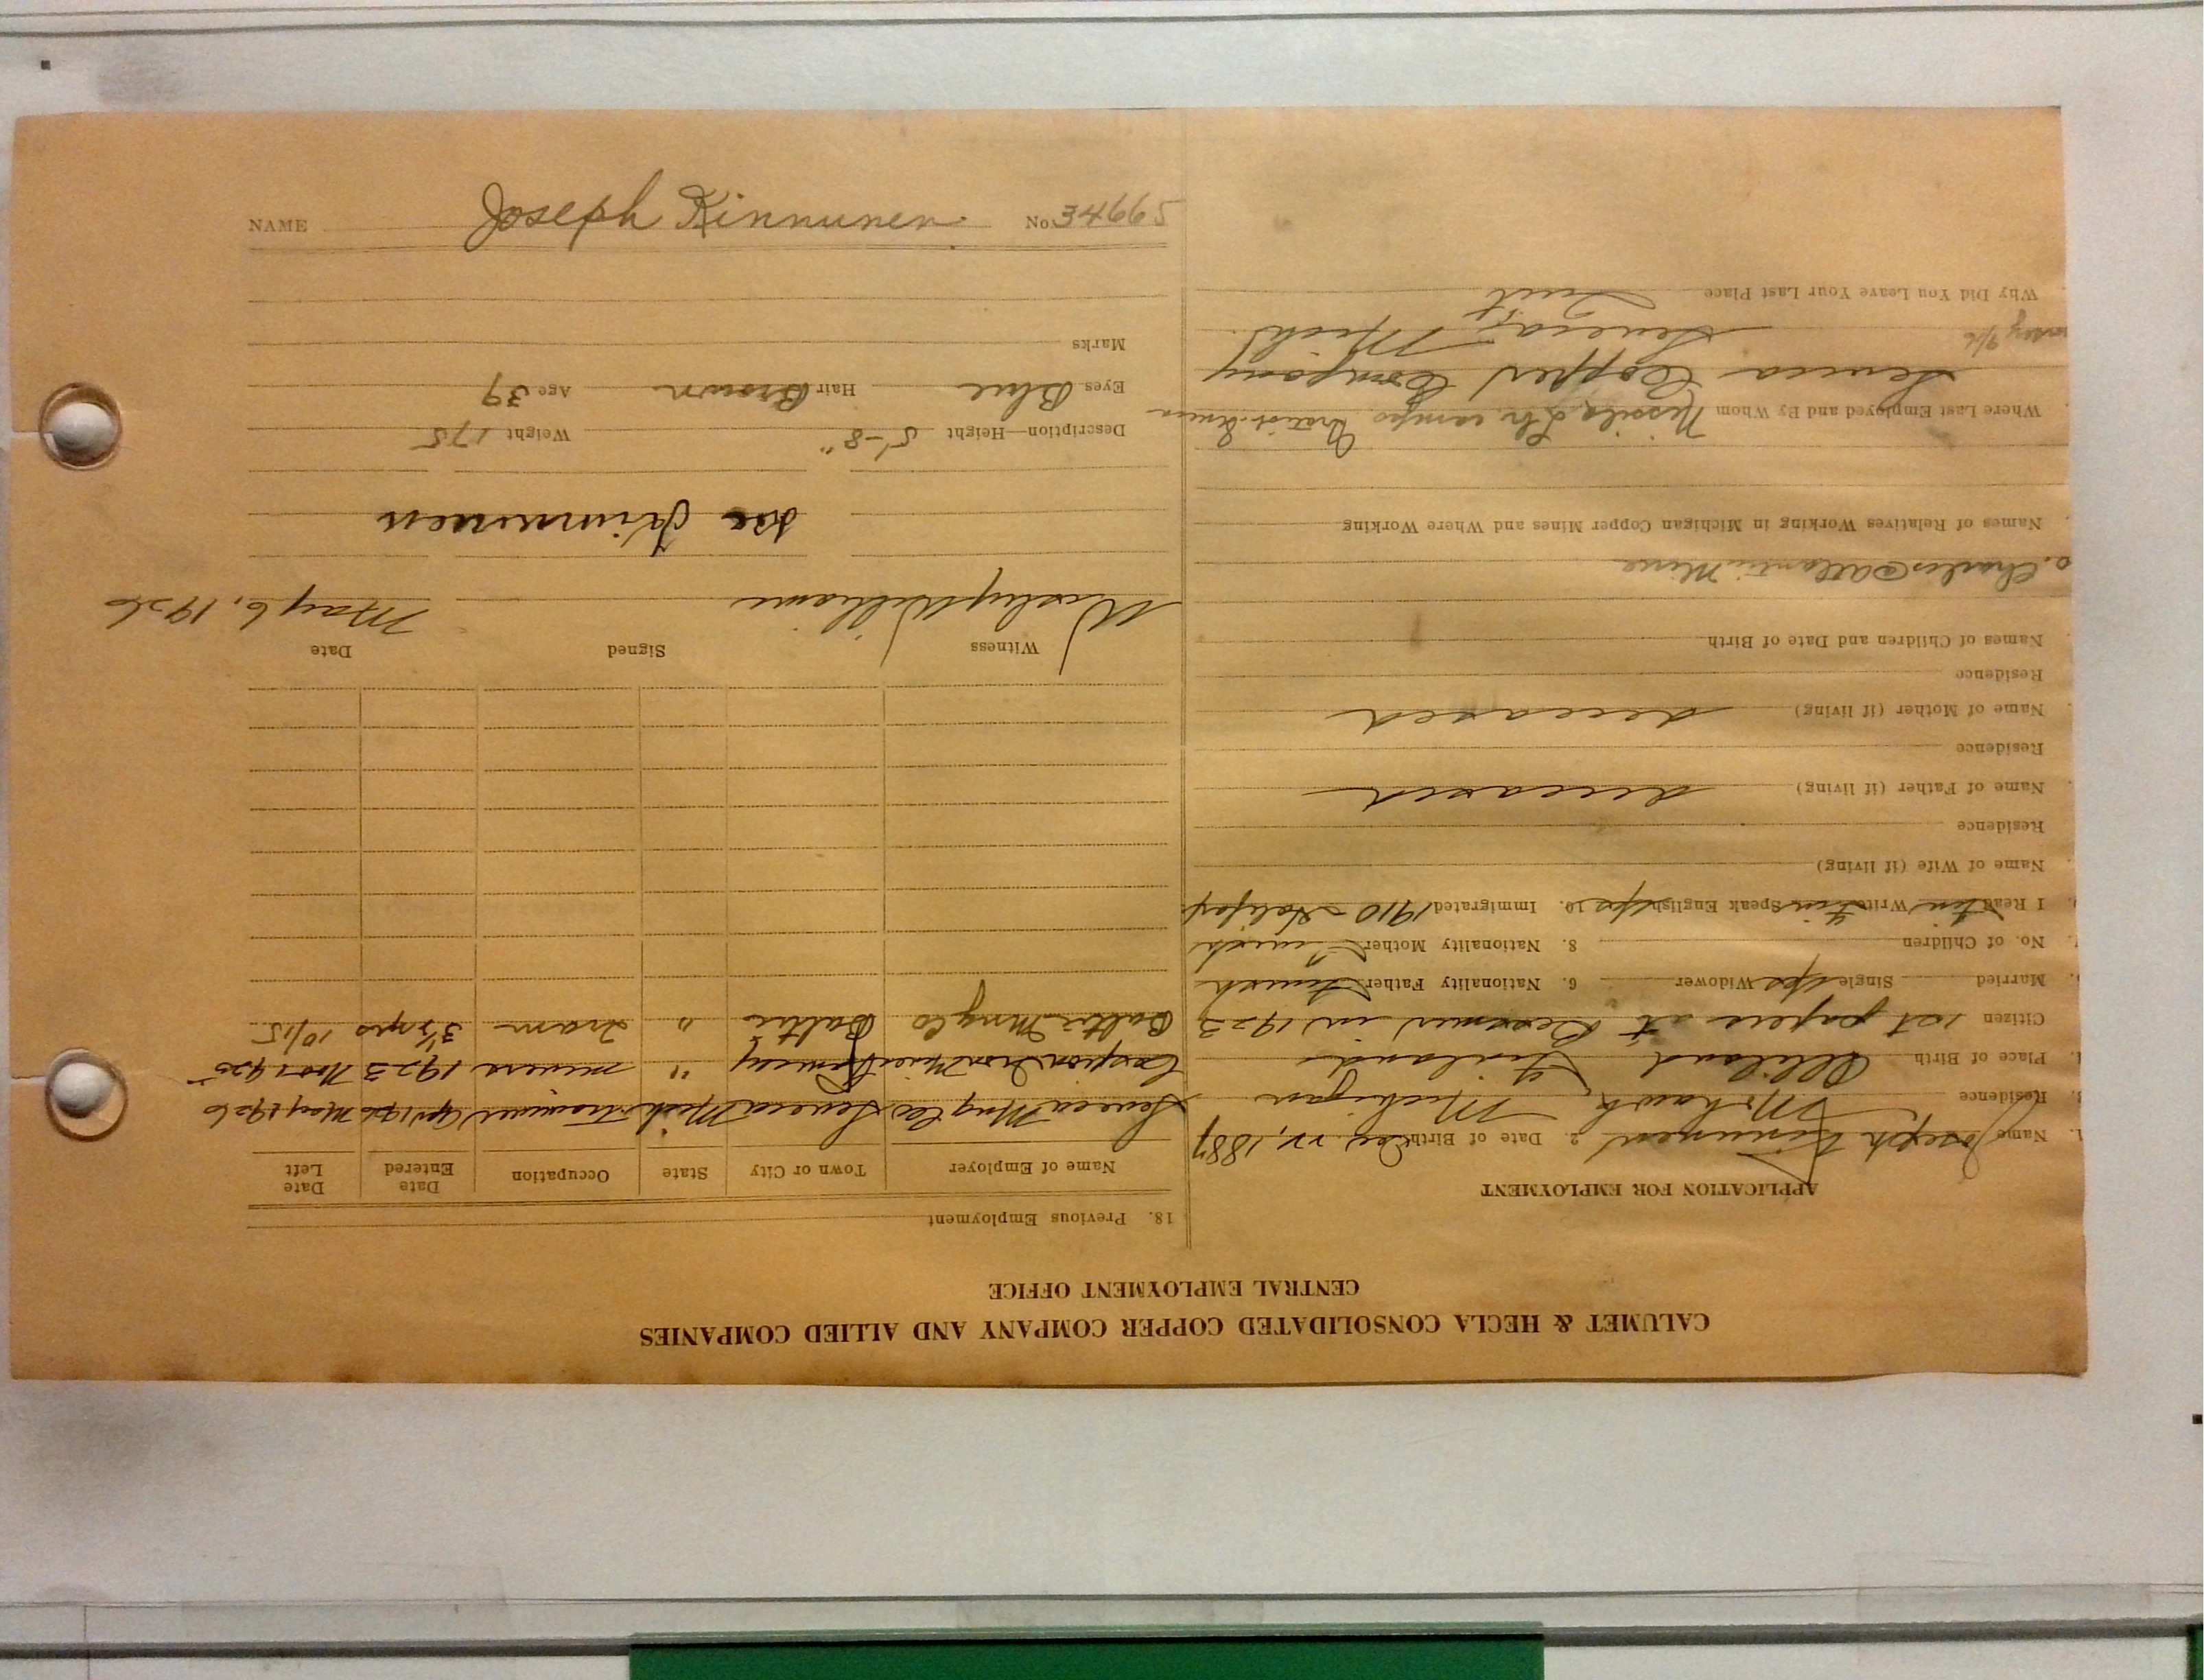 CALUMET & HECLA CONSOLIDATED COPPER COMPANY AND ALLIED COMPANIES
CENTRAL EMPLOYMENT OFFICE
APPLICATION FOR EMPLOYMENT
1. Name Joseph Kinnunen 2. Date of Birth 22, 1887
Residence Mohawk, Michigan
Place of Birth Finland
Citizen 1st papers at in 1923
Married Single yes Widower 6. Nationality Father Finnish
No. of Children 8. Nationality Mother Finnish
I Read Finn Write Finn Speak English yes 10. Immigrated 1910 Halifax
Name of Wife (if living)
Residence
Name of Father (if living) deceased
Residence
Name of Mother (if living) deceased
Residence
Names of Children and Date of Birth
Charles Atlantic Mine
Names of Relatives Working in Michigan Copper Mines and Where Working
Where Last Employed and By Whom
Seneca Copper Company
Seneca, Mich.
Why Did You Leave Your Last Place Quit
18. Previous Employment
Name of Employer Town or City State Occupation Date Entered Date Left
Seneca Mng Co Seneca Mich Tramming Apr 1926 May 1926
Caspian Iron Mine " miner 1923 Nov 1925
Baltic Mng Co Baltic " Tram 3½ yrs 10/15
Witness Signed Date
Wesley Williams May 6, 1926
Joe Kinnunen
Description—Height 5'-8" Weight 175
Eyes Blue Hair Brown Age 39
Marks
NAME Joseph Kinnunen No. 34665